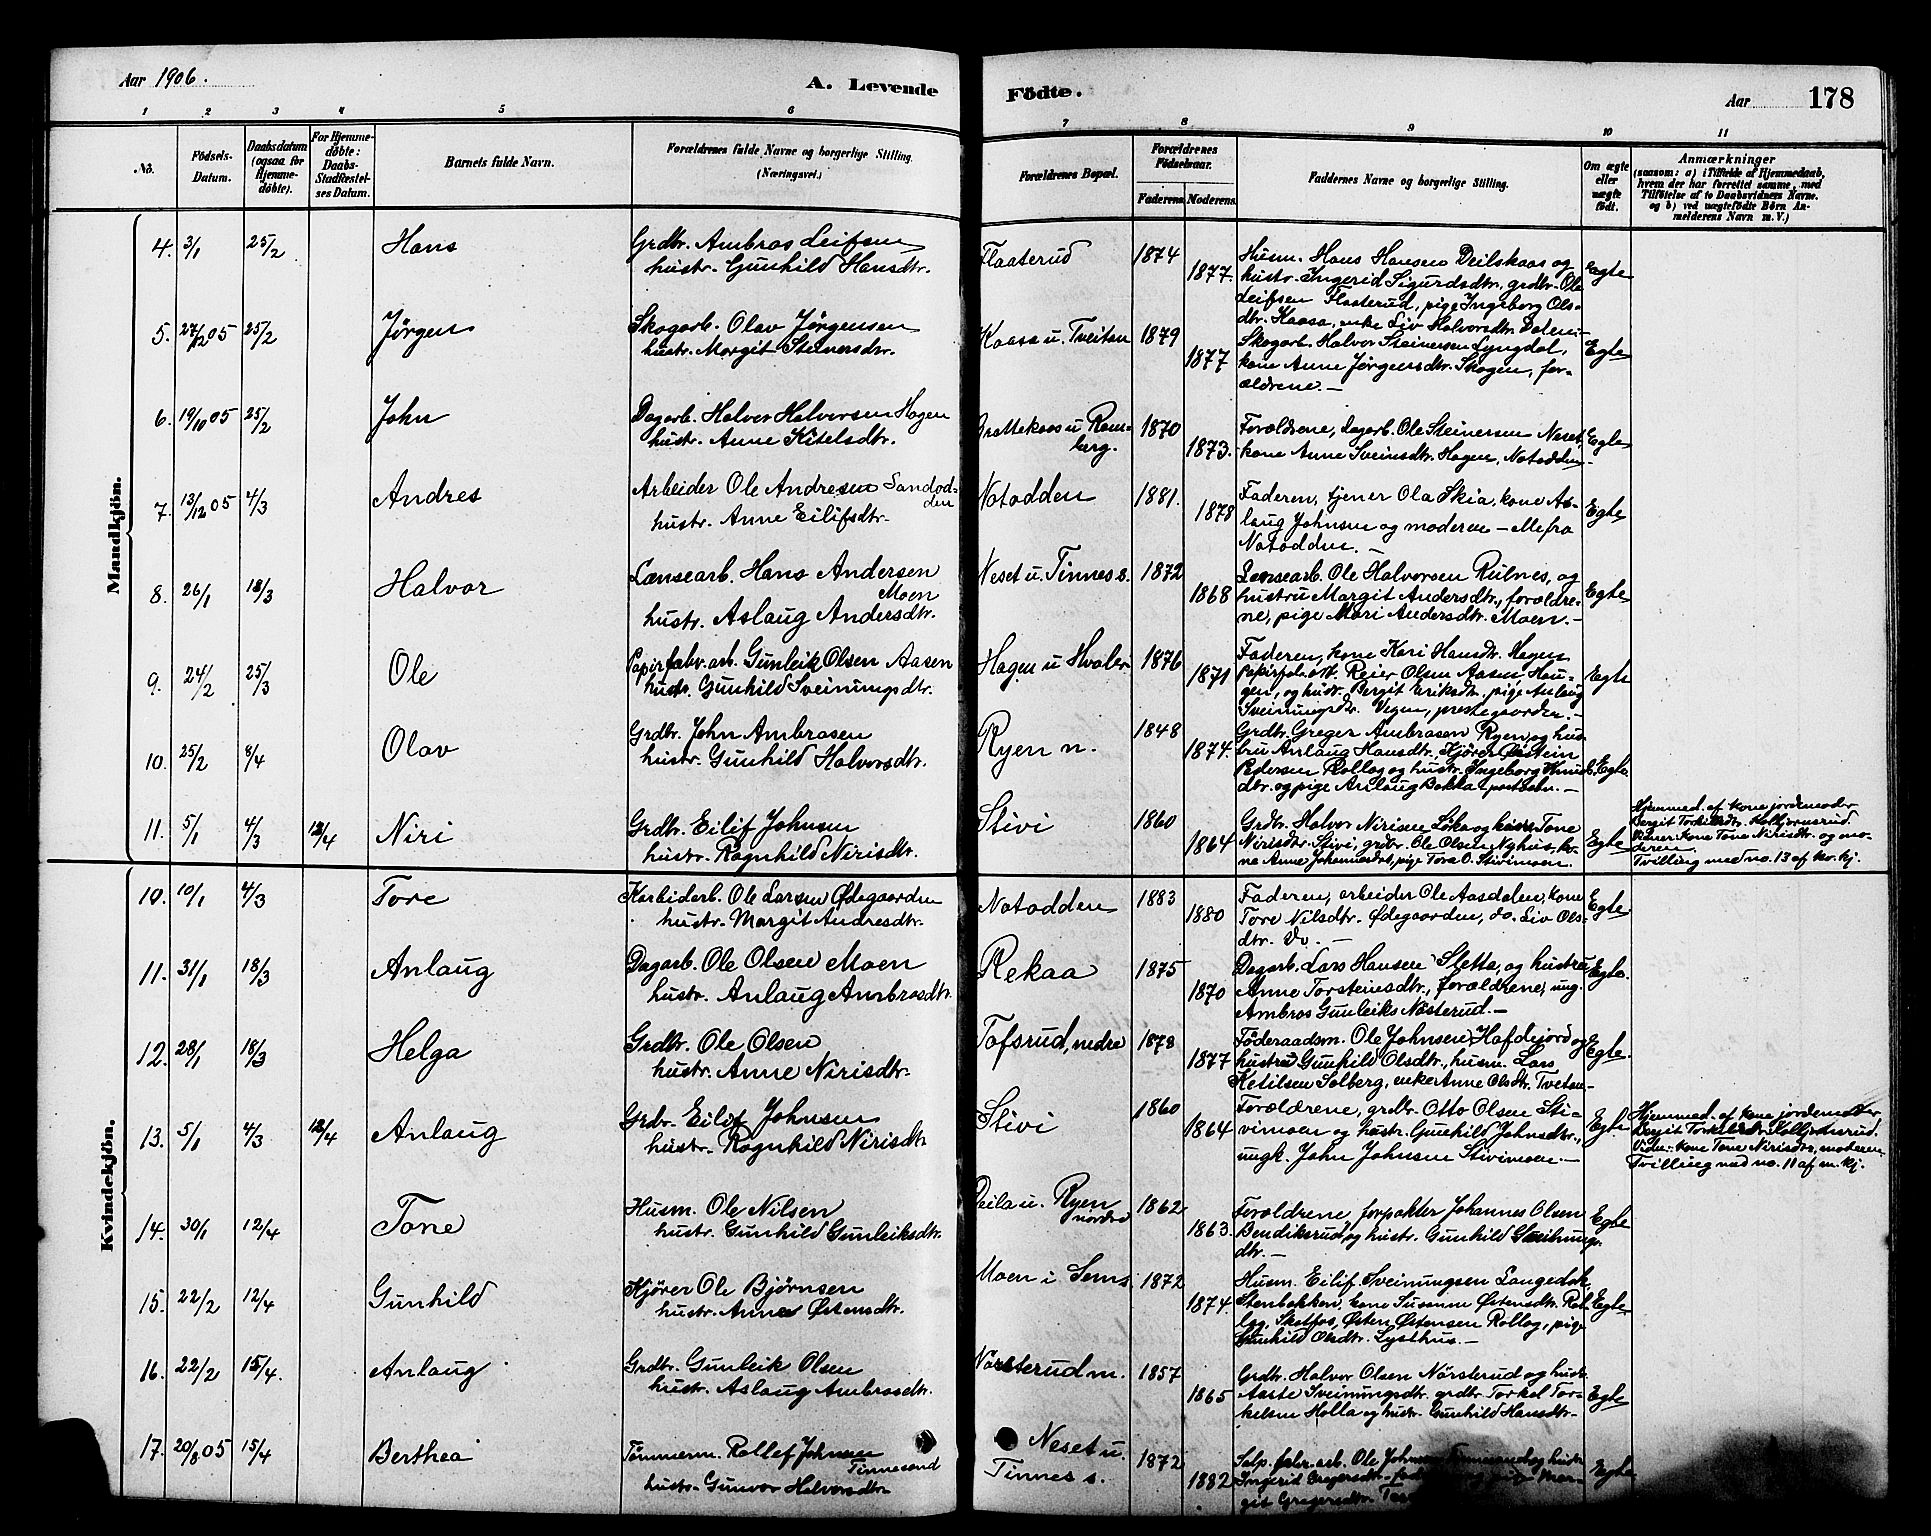 Aar 1906.
A. Levende
Födte.
Aar 178
1 2 3 4 5 6 7 8 9 10 11
No.
Födsels-
Datum.
Daabsdatum
(ogsaa for
Hjemme-
döbte).
For Hjemme-
döbte:
Daabs-
Stadfæstel-
ses Datum.
Barnets fulde Navn.
Forældrenes fulde Navne og borgerlige Stilling.
(Næringsvei.)
Forældrenes Bopæl.
Forældrenes
Födselsaar.
Faderens. Moderens.
Faddernes Navne og borgerlige Stilling.
Om ægte
eller
uægte
födt.
Anmærkninger
(saasom: a) i Tilfælde af Hjemmedaab,
hvem der har forrettet samme, med
Tilföielse af to Daabsvidners Navne.
og b) ved uægtefödte Börn An-
melderens Navn m. V.)
Mandkjön.
4. 3/1 25/2 Hans
Grdbr. Ambros Leifsen
hustr. Gunhild Hansdtr.
Flaaterud 1874 1877.
Husm. Hans Hansen Deilskaas og
hustr. Ingerid Sigurdsdtr, grdbr. Ole
Leifsen Flaaterud, pige Ingeborg Ols-
dtr. Kaasa, enke Liv Halvorsdtr. Dalen.
Egte
5. 27/12 05 25/2 Jørgen
Skogarb. Olav Jørgensen
hustr. Margit Steinersdtr.
Kaasa u. Tveitan 1879 1877
Skogarb. Halvor Steinersen Lyngdal,
kone Anne Jørgensdtr. Skogen, for-
ældrene.
Egte
6. 19/10 05 25/2 John
Dagarb. Halvor Halvorsen Hagen
hustr. Anne Kitelsdtr.
Brattekaas u Ram-
berg. 1870 1873.
Forældrene, dagarb. Ole Steinersen Neset,
kone Anne Sveinsdtr. Hagen, Notodden.
Egte
7. 13/12 05 4/3 Andres
Arbeider Ole Andresen Sandod-
den
hustr. Anne Eilifsdtr.
Notodden 1881. 1878
Faderen, tjener Ola Skia, kone As-
laug Johnsen og moderen - alle fra
Notodden.
Egte
8. 26/1 18/3 Halvor
Lænsearb. Hans Andersen
Moen
hustr. Aslaug Andersdtr.
Neset u. Tinnes s. 1872 1868
Lænsearb. Ole Halvorsen Rulnes, og
hustru Margit Andersdtr., forældre-
ne, pige Mari Andersdtr. Moen.
Egte
9. 24/2 25/3 Ole
Papirfabr.arb. Gunleik Olsen Aasen
hustr. Gunhild Sveinungsdtr.
Hagen u Hvaler 1876 1871
Faderen, kone Kari Hansdtr. Hagen
Reier Olsen Aasen Hau-
gen, og hustr. Bergit Eriksdtr. pige Anlaug
Sveinungsdtr. Vegen, prestegaarden.
Egte
10. 25/2 8/4 Olav
Grdbr. John Ambrosen
hustr. Gunhild Halvorsdtr.
Ryen n. 1848 1874.
Grdbr. Greger Ambrosen Ryen, og hus-
tru Anlaug Hansdtr. Kjører Østein
Pedersen Rollag og hustr. Ingeborg Knuds-
dtr. og pige Anlaug Bakka
Egte
11. 5/1 4/3 12/4 Niri
Grdbr. Eilif Johnsen
hustr. Ragnhild Nirisdtr.
Stivi 1860 1864
Grdbr. Halvor Nirisen Løka og hustr. Tone
Nirisdtr. Stivi, grdbr. Ole Olsen Aghus, ko-
ne Anne Johannesdtr, pige Tora O. Stivimoen.
Egte
Hjemmed. af kone jordemoder
Bergit Torkildsdtr. Kolbjørnsrud.
Vidner: kone Tone Nirisdtr. og mo-
deren.
Tvilling med no. 13 af kv. kj.
Kvindekjön.
10. 10/1 4/3 Tore
Karbidarb. Ole Larsen Ødegaarden
hustr. Margit Andresdtr.
Notodden 1883 1880
Faderen, arbeider Ole Aasdalen, kone
Tore Nilsdtr. Ødegaarden, do. Liv Ols-
dtr. Do.
Egte
11. 31/1 18/3 Anlaug
Dagarb. Ole Olsen Moen
hustr. Anlaug Ambrosdtr.
Rekaa 1875 1870
Dagarb. Lars Hansen Sletta, og hustru
Anne Torsteinsdtr., forældrene, ung.
Ambros Gunleiks Nøsterud.
Egte.
12. 28/1 18/3 Helga
Grdbr. Ole Olsen
hustr. Anne Nirisdtr.
Tofsrud, nedre 1878 1877
Føderaadsm. Ole Johnsen Hafdejord og
hustru Gunhild Olsdtr., husm. Lars
Ketilsen Solberg, enke Anne Olsdtr. Tvetan
Egte.
13. 5/1 4/3 12/4 Anlaug
Grdbr. Eilif Johnsen
hustr. Ragnhild Nirisdtr.
Stivi 1860 1864
Forældrene, grdbr. Otto Olsen Sti-
vimoen og hustr. Gunhild Johnsdtr.,
ungk. John Johnsen Stivimoen.
Egte
Hjemmed. af kone jordemoder
Bergit Torkildsdtr. Kolbjørnsrud.
Vidn.: kone Tone Nirisdtr, moderen.
Tvilling med no. 11 af m. kj.
14. 30/1 12/4 Tone
Husm. Ole Nilsen
hustr. Gunhild Gunleiksdtr.
Deila u. Ryen
nordre 1862 1863.
Forældrene, forpakter Johannes Olsen
Bendiksrud, og hustr. Gunhild Sveinungs-
dtr.
Egte
15. 22/2 12/4 Gunhild
Kjører Ole Bjørnsen
hustr. Anne Østensdtr.
Moen i Sems 1872 1874.
Husm. Eilif Sveinungsen Langedok
Stenbakken, kone Susanne Østensdtr. Rol-
lag, Skotfos, Østen Østensen Rollag, pige
Gunhild Olsdtr. Lysthus.
Egte
16. 22/2 15/4. Anlaug
Grdbr. Gunleik Olsen
hustr. Aslaug Ambrosdtr.
Nørsterud m. 1857 1865
Grdbr. Halvor Olsen Nørsterud og hustr.
Aaste Sveinungsdtr. grdbr. Torkel Tor-
kelsen Holla og hustr. Gunhild Hansdtr.
Egte
17. 20/8 05 15/4 Berthea
Tømmerm. Rollef Johnsen
Tinnesand
hustr. Gunvor Halvorsdtr.
Neset u.
Tinnes s. 1872 1882
Salp. fabr. arb. Ole Johnsen Tinnesand og hustr.
Ingerid Gregersdtr. pige Mar-
git Gregersdtr.
Egte